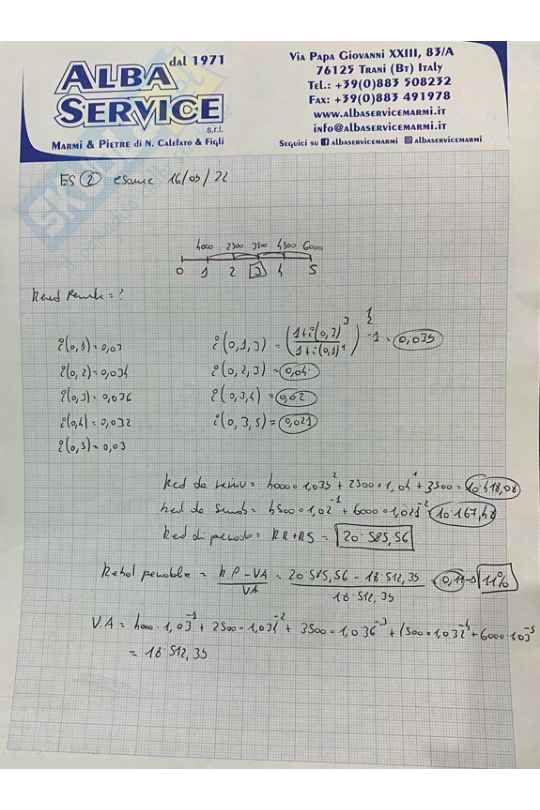 ALBA dal 1971
SERVICE
s.r.l.
Marmi & Pietre di N. Calefato & Figli
Via Papa Giovanni XXIII, 83/A
76125 Trani (Bt) Italy
Tel.: +39(0)883 508232
Fax: +39(0)883 491978
www.albaservicemarmi.it
info@albaservicemarmi.it
Seguici su albaservicemarmi albaservicemarmi
ES 2 esame 16/03/22
4000 2500 3500 4500 6000
0 1 2 3 4 5
= ?
i(0,1) = 0,03
i(0,2) = 0,034
i(0,3) = 0,036
i(0,4) = 0,032
i(0,5) = 0,03
i(0,1,3) = ((1+i(0,3)^3)/(1+i(0,1)^1))^1/2 - 1 = 0,039
i(0,2,3) = 0,04
i(0,3,4) = 0,02
i(0,3,5) = 0,021
Red da reinv = 4000·1,039^2 + 2500·1,04^1 + 3500 = 10.418,08
Red da smob = 4500·1,02^-1 + 6000·1,021^-2 10.167,48
Red di periodo = RR+RS = 20.585,56
periodale = R.P-VA/VA = 20.585,56 - 18.512,35/18.512,35 = 0,11 → 11%
V.A = 4000·1,03^-1 + 2500·1,034^-2 + 3500·1,036^-3 + 4500·1,032^-4 + 6000·1,03^-5
= 18.512,35